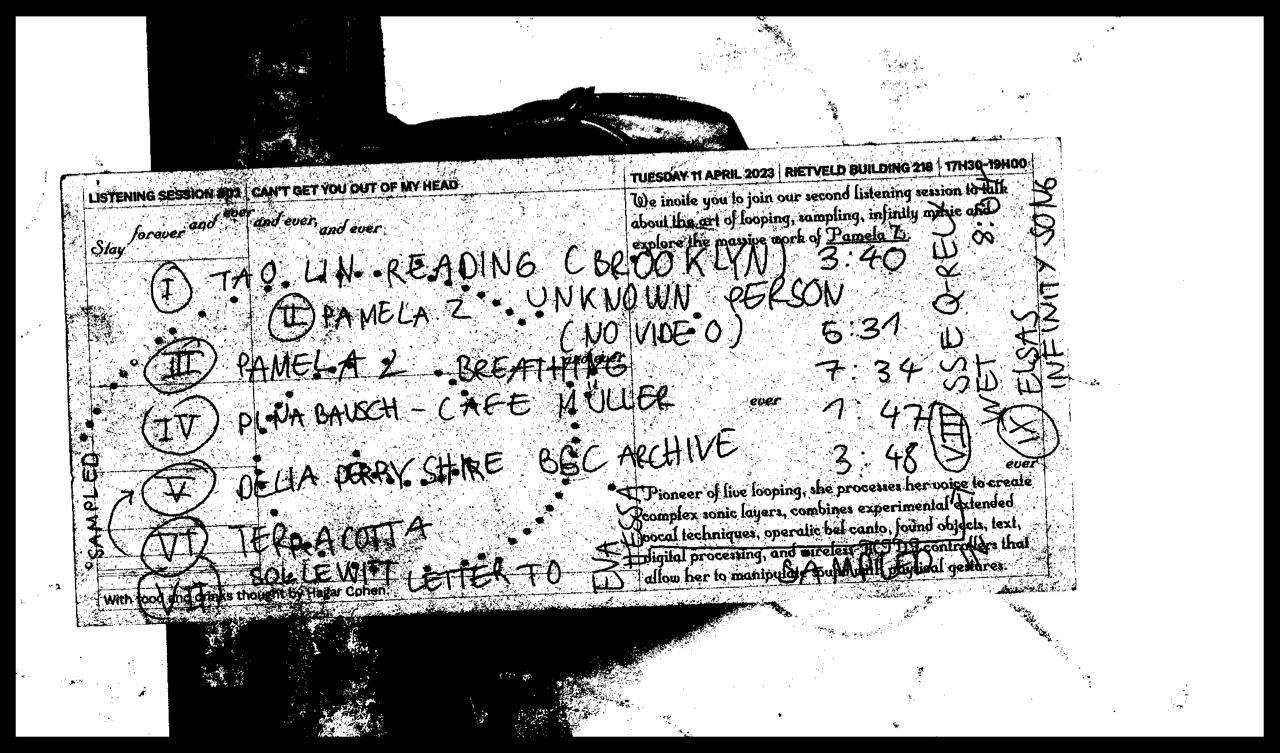 LISTENING SESSION #02 CAN'T GET YOU OUT OF MY HEAD
TUESDAY 11 APRIL 2023 RIETVELD BUILDING 218 17H30-19H00
Stay forever and ever and ever, and ever
We invite you to join our second listening session to talk
about the art of looping, sampling, infinity music and
explore the massive work of Pamela Z.
I TAO LIN READING (BROOKLYN) 3:40
II PAMELA Z UNKNOWN PERSON
(NO VIDEO) 6:31
and ever
III PAMELA Z BREATHING 7:34
IV PINA BAUSCH - CAFE MÜLLER 1:47
ever
V DELIA DERBYSHIRE BBC ARCHIVE 3:48
ever
VI TERRACOTTA
VII SOL LEWITT LETTER TO
EVA HESSA
VIII SSE Q-RELL
WET
IX ELSAS
INFINITY SONG
SAMPLED
Pioneer of live looping, she processes her voice to create
complex sonic layers, combines experimental extended
vocal techniques, operatic bel canto, found objects, text,
digital processing, and wireless controllers that
allow her to manipulate sound with physical gestures.
With food and drinks thought by Hagar Cohen.